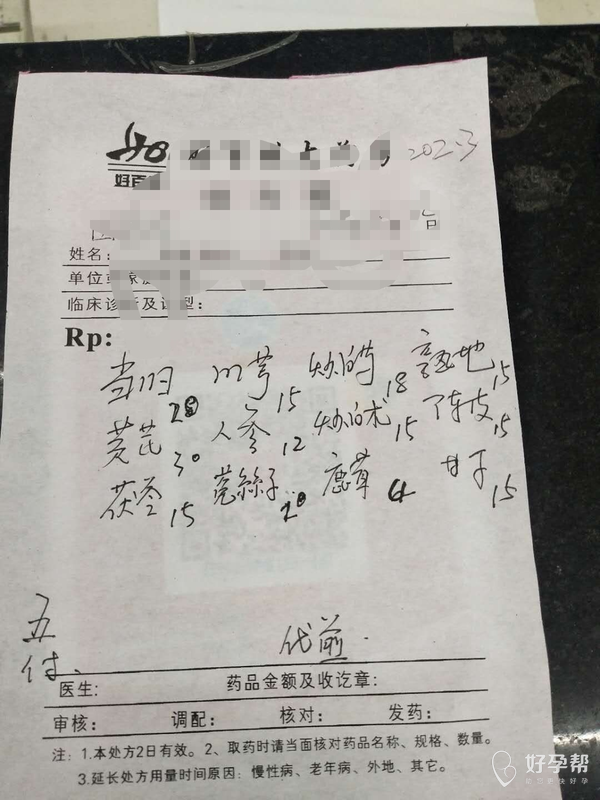 好百
202.3
姓名：
单位或
临床诊断及证型：
Rp:
当归 20 川芎 15 炒白芍 18 熟地 15
黄芪 30 人参 12 炒白术 15 陈皮 15
茯苓 15 菟絲子 20 鹿茸 4 甘草 15
五付、
代煎.
医生： 药品金额及收讫章：
审核： 调配： 核对： 发药：
注：1.本处方2日有效。2、取药时请当面核对药品名称、规格、数量。
3.延长处方用量时间原因：慢性病、老年病、外地、其它。
好孕帮